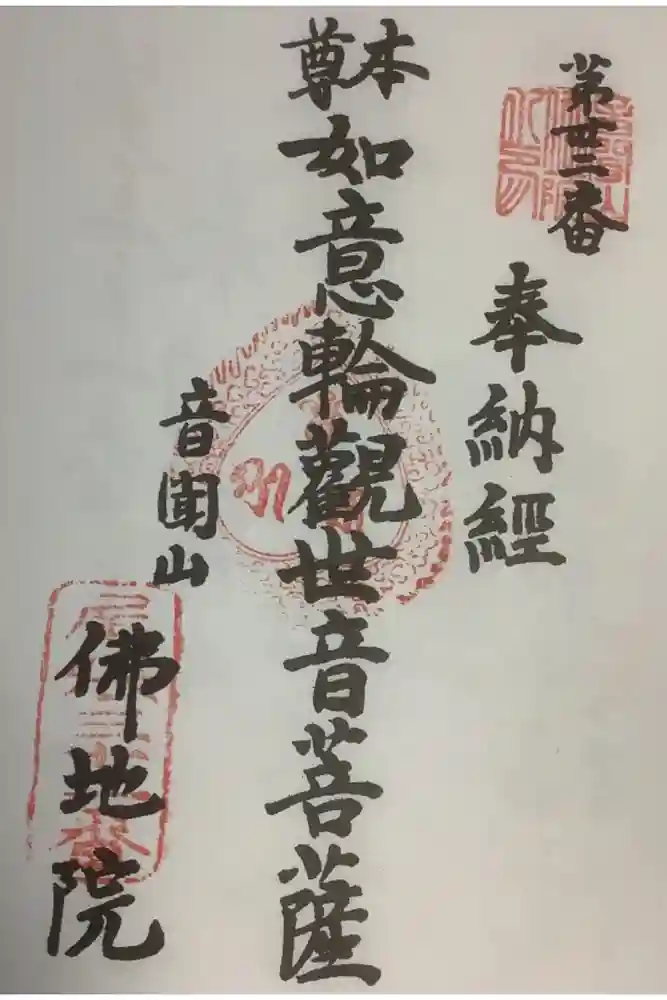 第卅三番
奉納經
本尊
如意輪觀世音菩薩
音聞山
佛地院